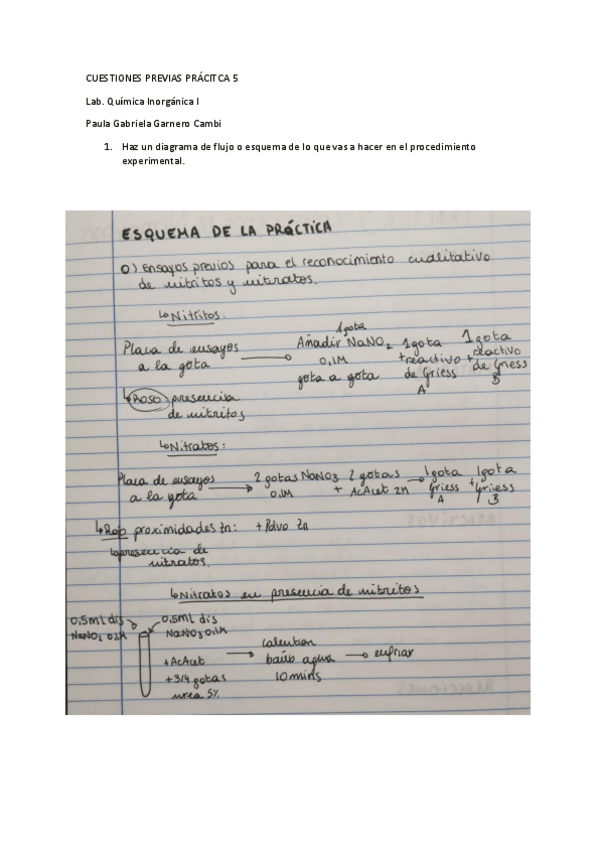 CUESTIONES PREVIAS PRÁCITCA 5
Lab. Química Inorgánica I
Paula Gabriela Garnero Cambi
1. Haz un diagrama de flujo o esquema de lo que vas a hacer en el procedimiento
experimental.
ESQUEMA DE LA PRÁCTICA
0) Ensayos previos para el reconocimiento cualitativo
de nitritos y nitratos.
↳ Nitritos:
Placa de ensayos
a la gota
→
1 gota
Añadir NaNO2
0,1M
gota a gota
1 gota
+ reactivo
de Griess
A
1 gota
+ reactivo
de Griess
B
↳ Rosa presencia
de nitritos
↳ Nitratos:
Placa de ensayos
a la gota
→
2 gotas NaNO3
0,1M
2 gotas
+ AcAcet 2M
→
1 gota
Griess
A
1 gota
+ Griess
B
↳ Rojo proximidades Zn: + Polvo Zn
↳ presencia de
nitratos.
↳ Nitratos en presencia de nitritos
0,5ml dis
NaNO2 0,1M
0,5ml dis
NaNO3 0,1M
+ AcAcet
+ 3/4 gotas
urea 5%
→
calentar
baño agua
10 mins
→ enfriar